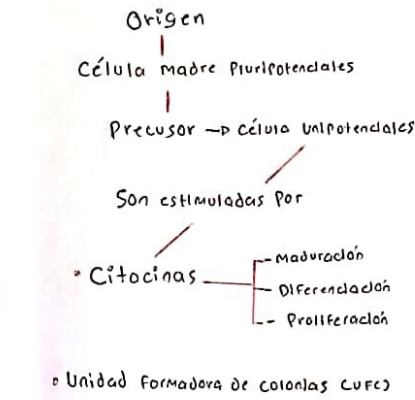 Origen
Célula madre Pluripotenciales
Precusor → célula unipotenciales
Son estimuladas por
• Citocinas
- Maduración
- Diferenciación
- Proliferación
• Unidad Formadora de colonias (UFC)